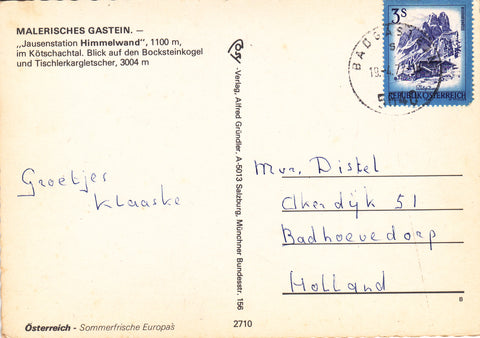 MALERISCHES GASTEIN. —
„Jausenstation Himmelwand", 1100 m,
im Kötschachtal. Blick auf den Bocksteinkogel
und Tischlerkargletscher, 3004 m
Groetjes
Klaaske
Österreich - Sommerfrische Europas
Cosy-Verlag, Alfred Gründler, A-5013 Salzburg, Münchner Bundesstr. 156
2710
3S
REPUBLIK ÖSTERREICH
BADGAST
Mvr. Distel
Akerdijk 51
Badhoevedorp
Holland
B